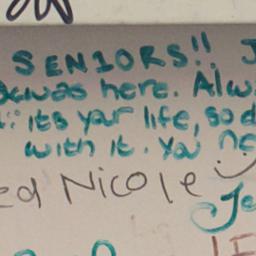 SENIORS!! J
was here. Alw
it's your life, so d
with it. You ne
ed Nicole
Je